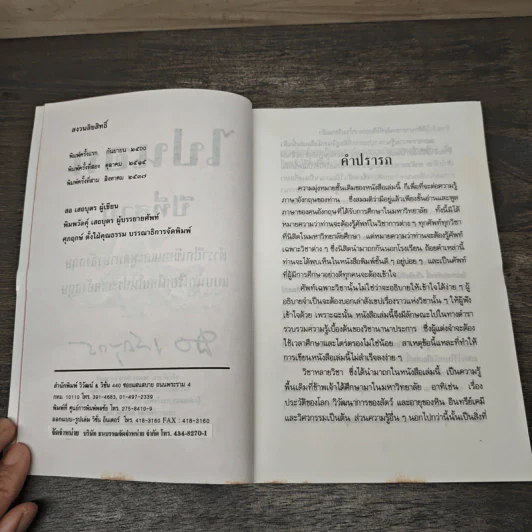 สงวนลิขสิทธิ์
พิมพ์ครั้งแรก กันยายน ๒๕๐๐
พิมพ์ครั้งที่สอง ตุลาคม ๒๕๑๔
พิมพ์ครั้งที่สาม สิงหาคม ๒๕๓๗
สอ เสถบุตร ผู้เขียน
พิมพวัลคุ์ เสถบุตร ผู้บรรยายศัพท์
ศุภฤกษ์ ตั้งใฝ่คุณธรรม บรรณาธิการจัดพิมพ์
สำนักพิมพ์ วิวัฒน์ & วิชั่น 440 ซอยแสนสบาย ถนนพระราม 4
กทม. 10110 โทร. 391-4683, 01-497-2339
พิมพ์ที่ ศูนย์การพิมพ์พลชัย โทร. 275-8410-9
ออกแบบ-รูปเล่ม วิชั่น อินเตอร์ โทร. 418-3160 FAX : 418-3160
จัดจำหน่าย บริษัท ธนบรรณจัดจำหน่าย จำกัด โทร. 434-8270-1
คำปรารภ
ความมุ่งหมายชั้นเดิมของหนังสือเล่มนี้ ก็เพื่อที่จะต่อความรู้
ภาษาอังกฤษของท่าน ซึ่งสมมติว่ามีอยู่แล้วเพียงขั้นอ่านและพูด
ภาษาของคนอังกฤษที่ได้รับการศึกษาในมหาวิทยาลัย ทั้งนี้มิได้
หมายความว่าท่านจะต้องรู้ศัพท์ในวิชาการต่าง ๆ ทุกศัพท์ทุกวิชา
ที่นิสิตในมหาวิทยาลัยศึกษา แต่หมายความว่าท่านจะต้องรู้ศัพท์
เฉพาะวิชาต่าง ๆ ซึ่งนิสิตนำมาถกกันนอกโรงเรียน ถ้อยคำเหล่านี้
ท่านจะได้พบเห็นในหนังสือพิมพ์ชั้นดี ๆ อยู่บ่อย ๆ และเป็นศัพท์
ที่ผู้มีการศึกษาอย่างดีทุกคนจะต้องเข้าใจ
ศัพท์เฉพาะวิชานั้นไม่ใช่ว่าจะอธิบายให้เข้าใจได้ง่าย ๆ ผู้
อธิบายจำเป็นจะต้องบอกเล่าสังเขปเรื่องราวแห่งวิชานั้น ๆ ให้ผู้ฟัง
เข้าใจด้วย เพราะฉะนั้น หนังสือเล่มนี้จึงมีลักษณะไปในทางตำรา
รวบรวมความรู้เบื้องต้นของวิชานานาประการ ซึ่งผู้แต่งจำจะต้อง
ใช้เวลาศึกษาและไตร่ตรองไม่ใช่น้อย สาเหตุข้อนี้แหละที่ทำให้
การเขียนหนังสือเล่มนี้ไม่สำเร็จลงง่าย ๆ
วิชาหลายวิชา ซึ่งได้นำมาถกในหนังสือเล่มนี้ เป็นความรู้
พื้นเดิมที่ข้าพเจ้าได้ศึกษามาในมหาวิทยาลัย อาทิเช่น เรื่อง
ประวัติของโลก วิวัฒนาการของสัตว์ และอายุของหิน อินทรีย์เคมี
และวิศวกรรมเป็นต้น ส่วนความรู้อื่น ๆ นอกไปกว่านี้นั้นเป็นสิ่งที่